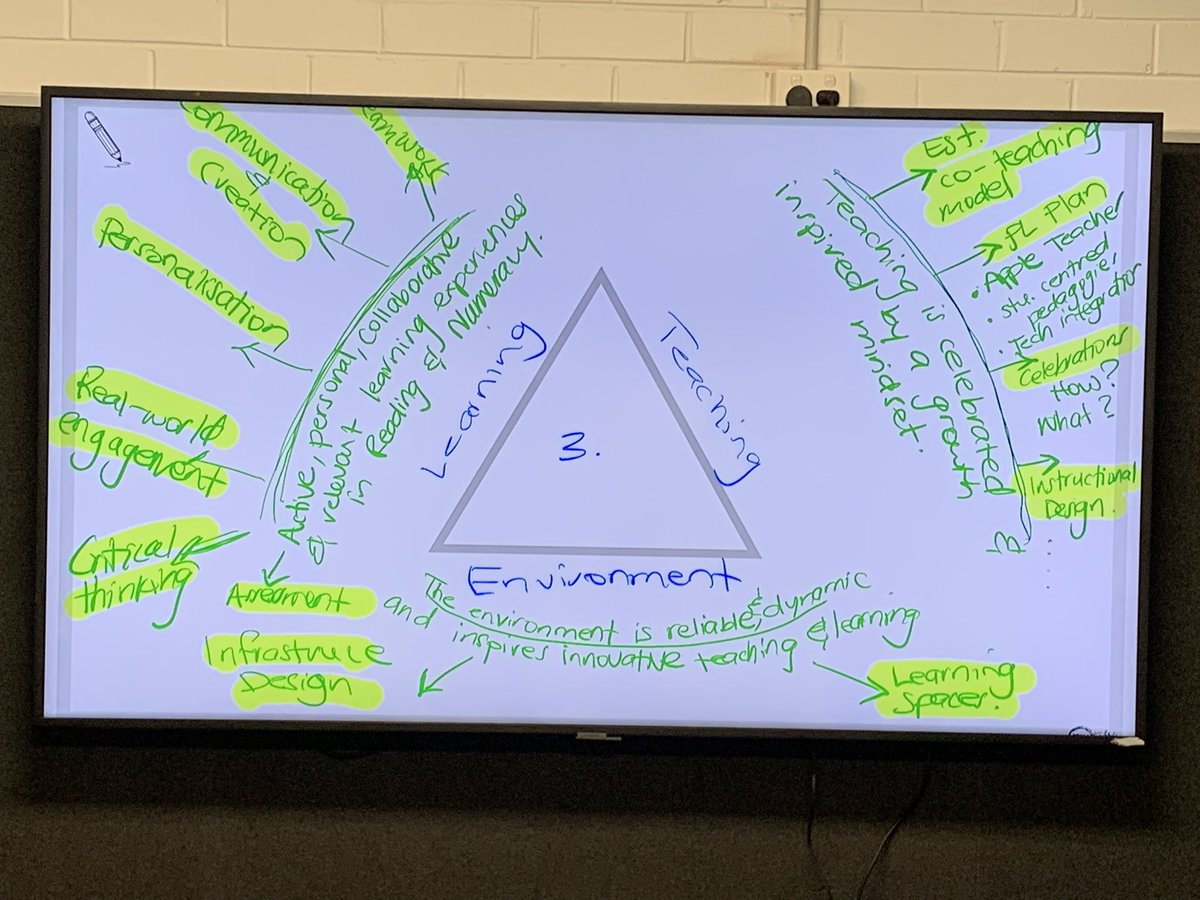 ommunication
Creation
eamwork
Personalisation
Real-world
engagement
Critical
thinking
Active, personal, collaborative
& relevant learning experiences
in Reading & Numeracy.
Learning
3.
Teaching
Environment
Teaching is celebrated
inspired by a growth
mindset.
Est.
co-teaching
model
PL Plan
• Apple Teacher
• stu. centred
pedagogies
• Tech integration
Celebrations
How?
What?
Instructional
Design.
The environment is reliable, & dynamic
and inspires innovative teaching & learning
Assessment
Design
Learning
Spaces.